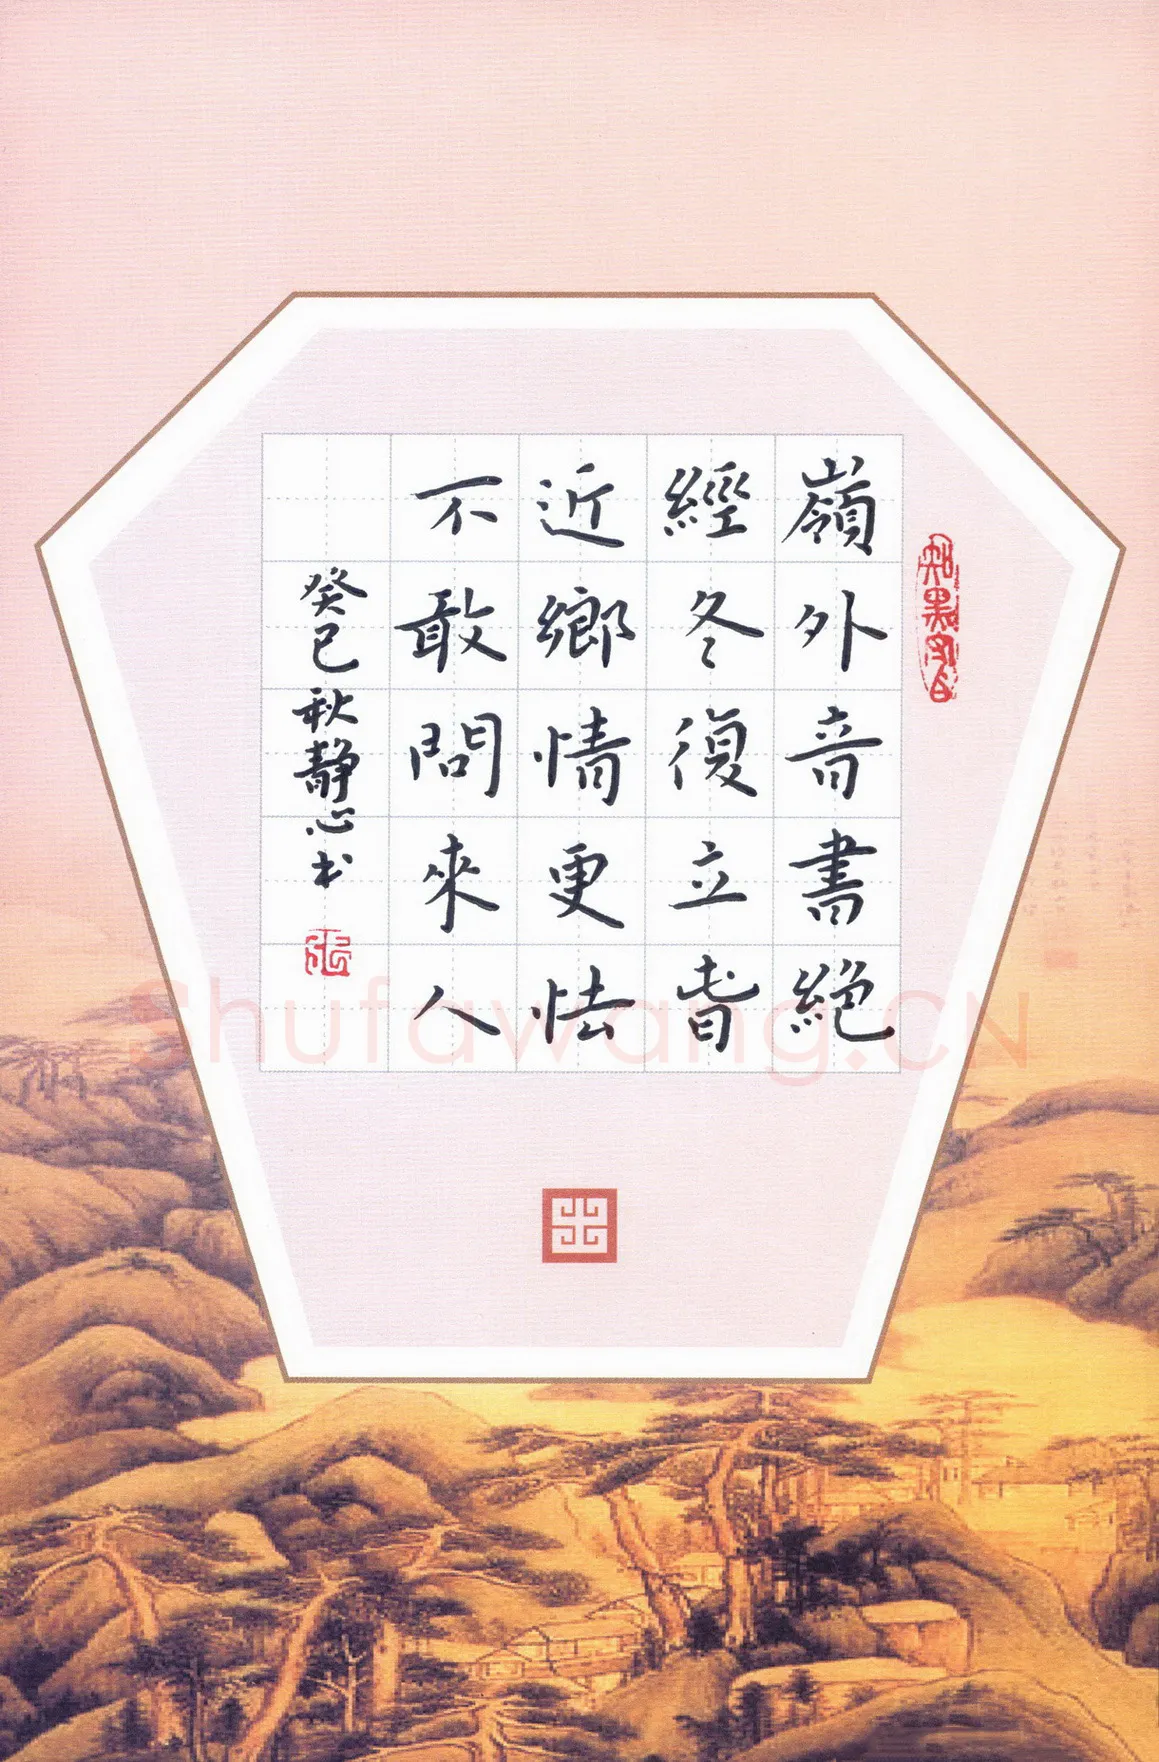 嶺外音書絶
經冬復立旾
近鄉情更怯
不敢問來人
癸巳秋静心书
知黑守白
Shufawang.CN